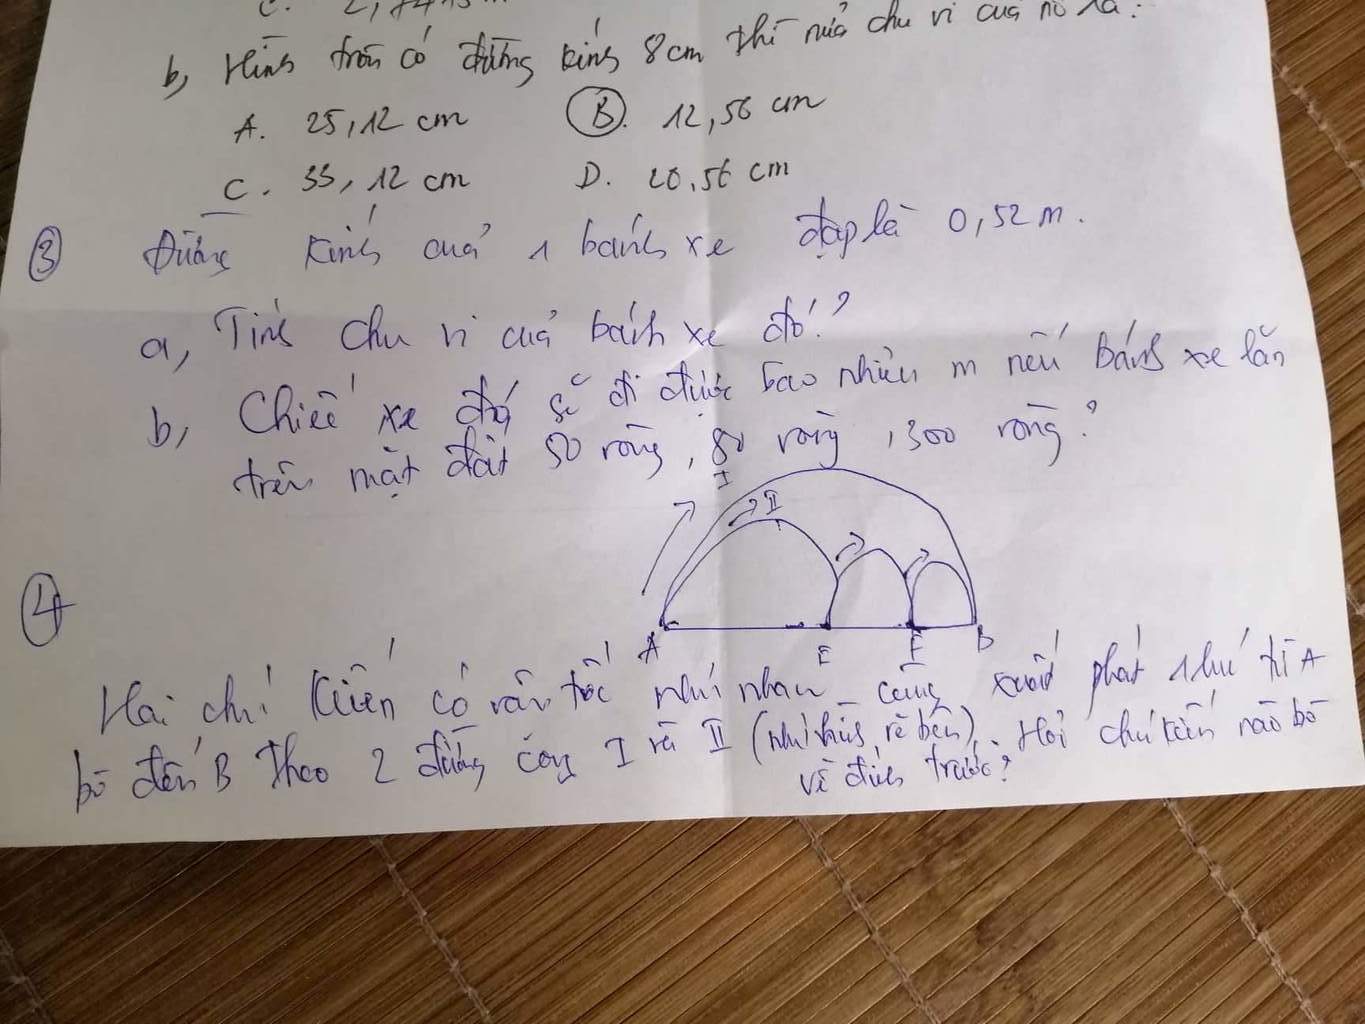 b, Hình tròn có đường kính 8cm thì nửa chu vi của nó là:
A. 25,12 cm B. 12,56 cm
C. 33,12 cm D. 20,56 cm
③ Đường kính của 1 bánh xe đạp là 0,52m.
a, Tính chu vi của bánh xe đó?
b, Chiếc xe đó sẽ đi được bao nhiêu m nếu bánh xe lăn
trên mặt đất 50 vòng, 80 vòng, 300 vòng?
I
II
④
A E F B
Hai chú kiến có vận tốc như nhau cùng xuất phát 1 lúc từ A
bò đến B theo 2 đường cong I và II (như hình vẽ bên). Hỏi chú kiến nào bò
về đích trước?